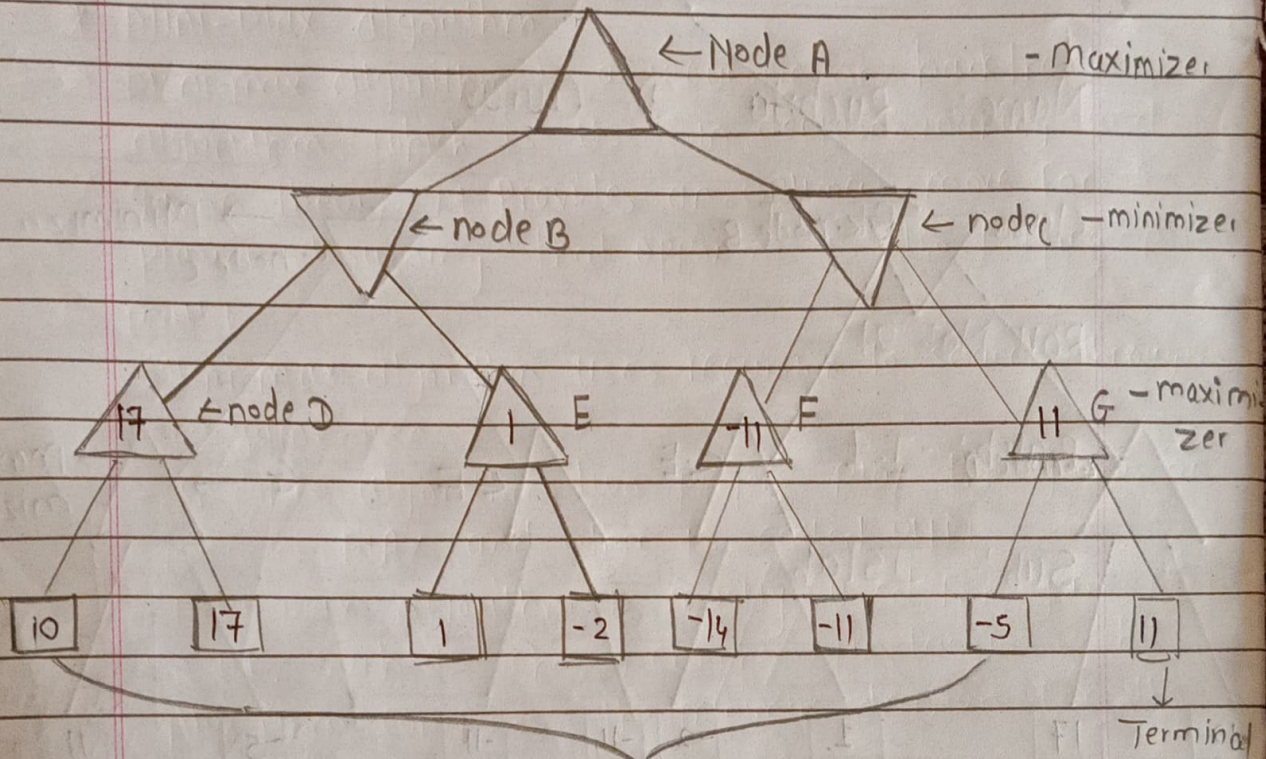 ←Node A - maximizer
←node B ←nodec -minimizer
17 ←node D 1 E -11 F 11 G -maximi
zer
10 17 1 -2 -14 -11 -5 11
Terminal